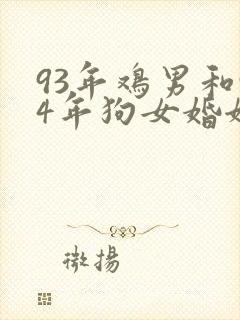 93年鸡男和
4年狗女婚
微揚